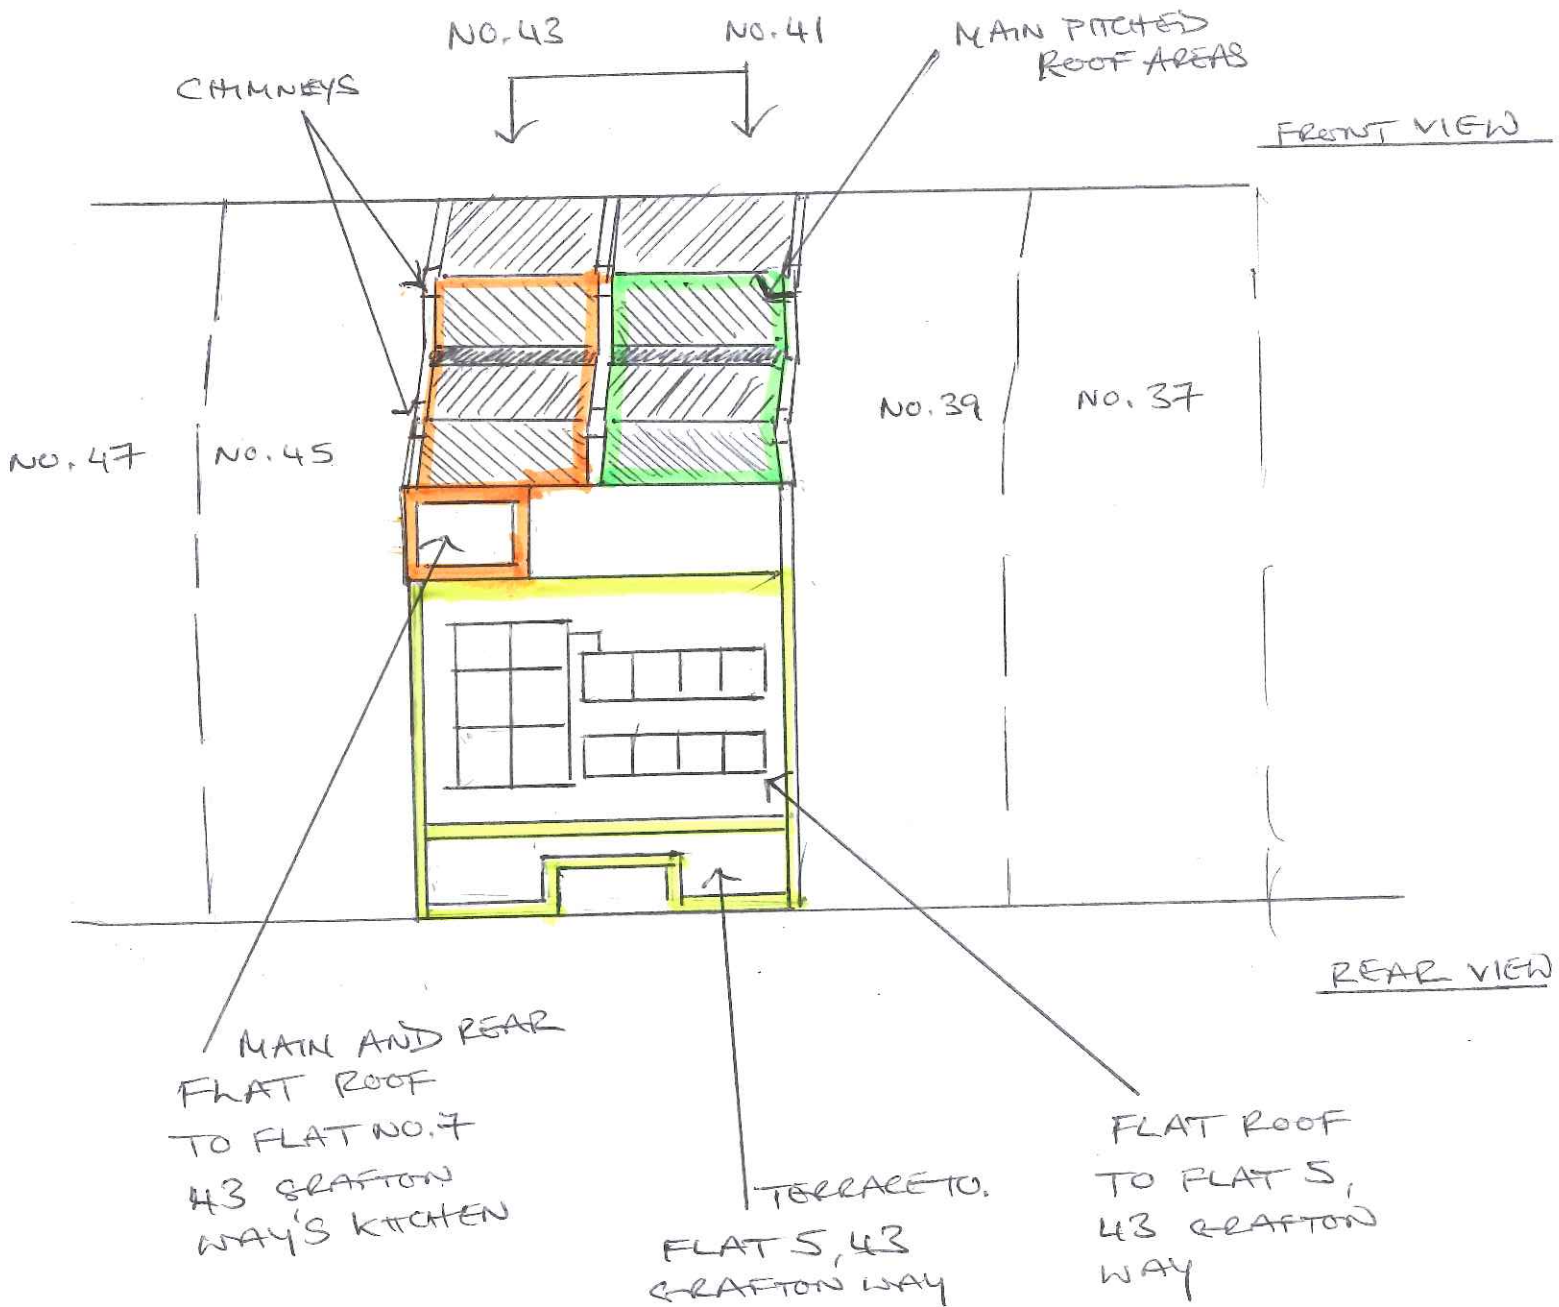 NO.43
NO.41
MAIN PITCHED
ROOF AREAS
CHIMNEYS
FRONT VIEW
NO.47
NO.45
NO.39
NO.37
REAR VIEW
MAIN AND REAR
FLAT ROOF
TO FLAT NO.7
43 GRAFTON
WAY'S KITCHEN
TERRACE TO.
FLAT 5, 43
GRAFTON WAY
FLAT ROOF
TO FLAT 5,
43 GRAFTON
WAY